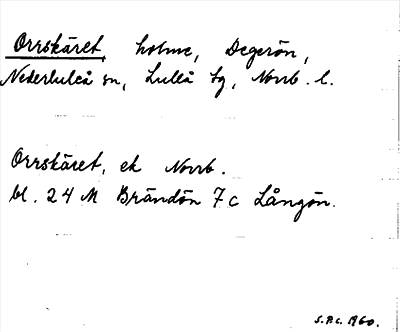 Orrskäret, holme, Degerön,
Nederluleå sn, Luleå tg, Norrb. l.
Orrskäret, ek Norrb.
bl. 24 M Brändön 7c Långön.
S.P.C. 1960.